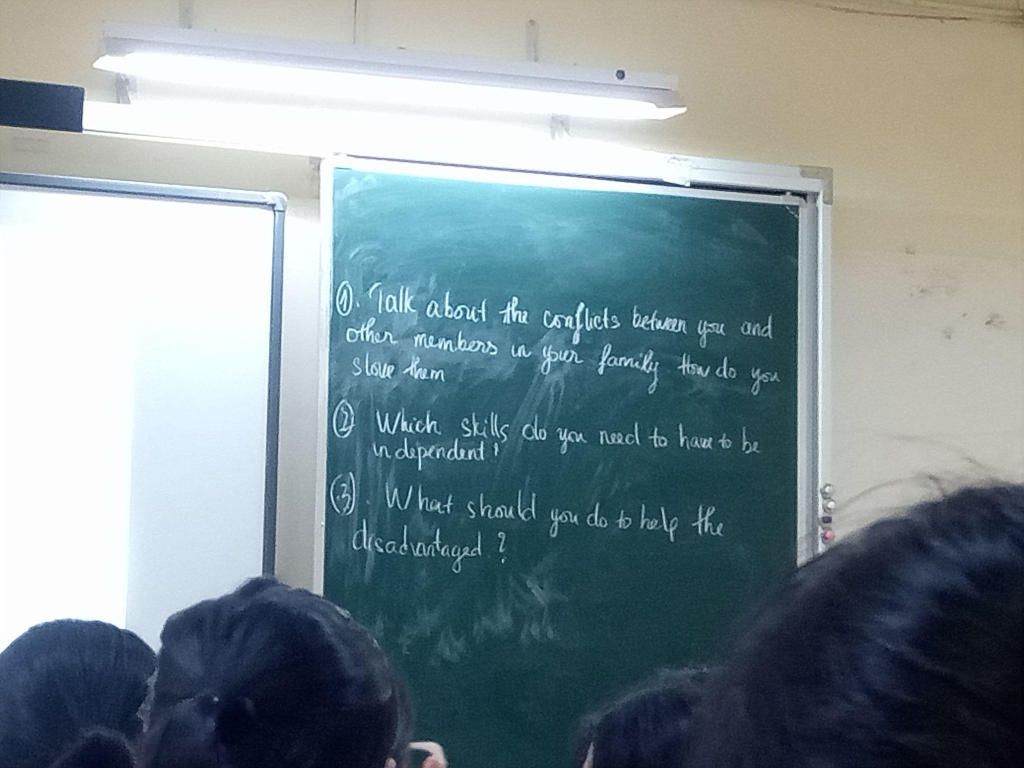 ①. Talk about the conflicts between you and
other members in your family How do you
slove them
② Which skills do you need to have to be
independent?
③. What should you do to help the
disadvantaged?